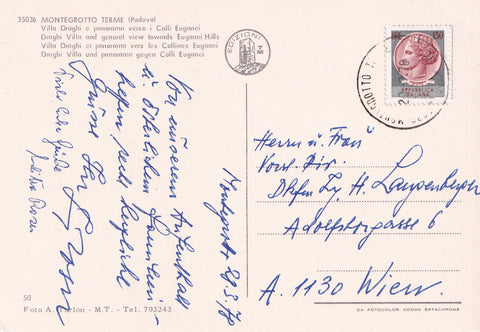 35036 MONTEGROTTO TERME (Padova)
Villa Draghi e panorama verso i Colli Euganei
Villa Draghi and general view towards Euganei Hills
Villa Draghi et panorama vers les Collines Euganei
Villa Draghi und panorama gegen Colli Euganei
EDIZIONI
TM
REPUBBLICA
ITALIANA
Montegrotto 20.3.78
Von unserem Aufenthalt
in
herzliche
Grüsse Ihr
Viele liebe Grüße
Herrn u. Frau
Vorst. Dir.
Dkfm. H. Langenberger
Adolfstorgasse 6
A. 1130 Wien
50
Foto A. - M.T. - Tel. 793243
DA FOTOCOLOR KODAK EKTACHROME